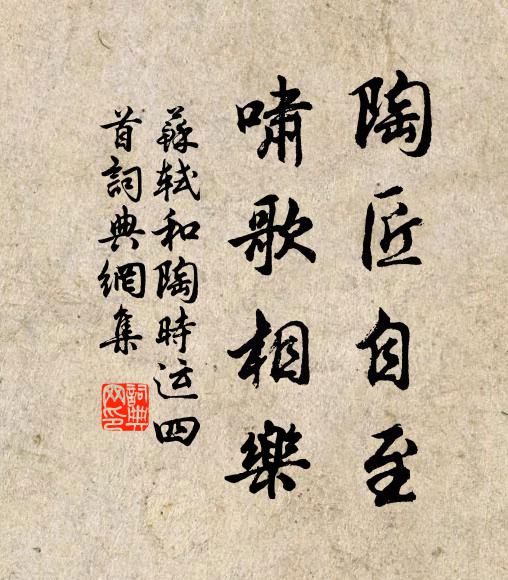 陶匠自至
嘯歌相樂
蘇軾和陶時运四
首詞典網集
詞典
网印